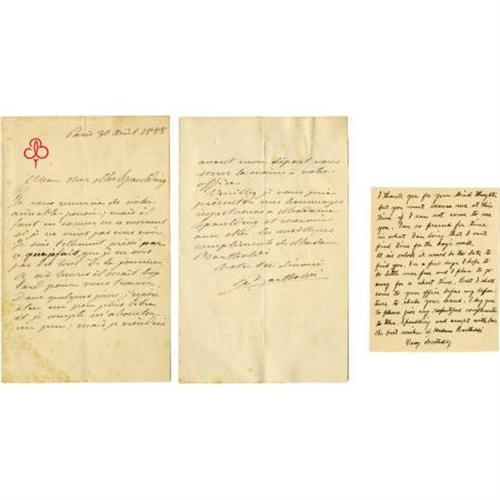 Paris 30 août 1885
Mon cher Mr Spaulding
Je vous remercie de votre
aimable pensée; mais il
faut m'excuser en ce moment
si je ne vais pas vous voir.
Je suis tellement pressé par
ce que je fais, que je ne suis
pas
A six heures il serait trop
tard pour vous trouver.
Dans quelques jours j'espère
être un peu plus libre
et je compte m'absenter
un peu; mais je viendrai
avant mon départ vous
serrer la main à votre
office.
Veuillez je vous prie
présenter mes hommages
respectueux à Madame
Spaulding et recevoir
avec elle les meilleurs
compliments de Madame
Bartholdi
Votre dévoué
Bartholdi
I thank you for your kind thought
but you must excuse me at this
time if I can not come to see
you. I am so pressed for time
in what I am doing that I can't
find time for the day's work,
At six o'clock it would be too late to
find you. In a few days I hope to
be little more free and I plan to go
away for a short time. But I shall
come to your office before my depar-
ture to shake your hand. I beg you
to please give my respectful compliments
to Mrs. Spaulding and accept with her
the best wishes of Madame Bartholdi
Bartholdi